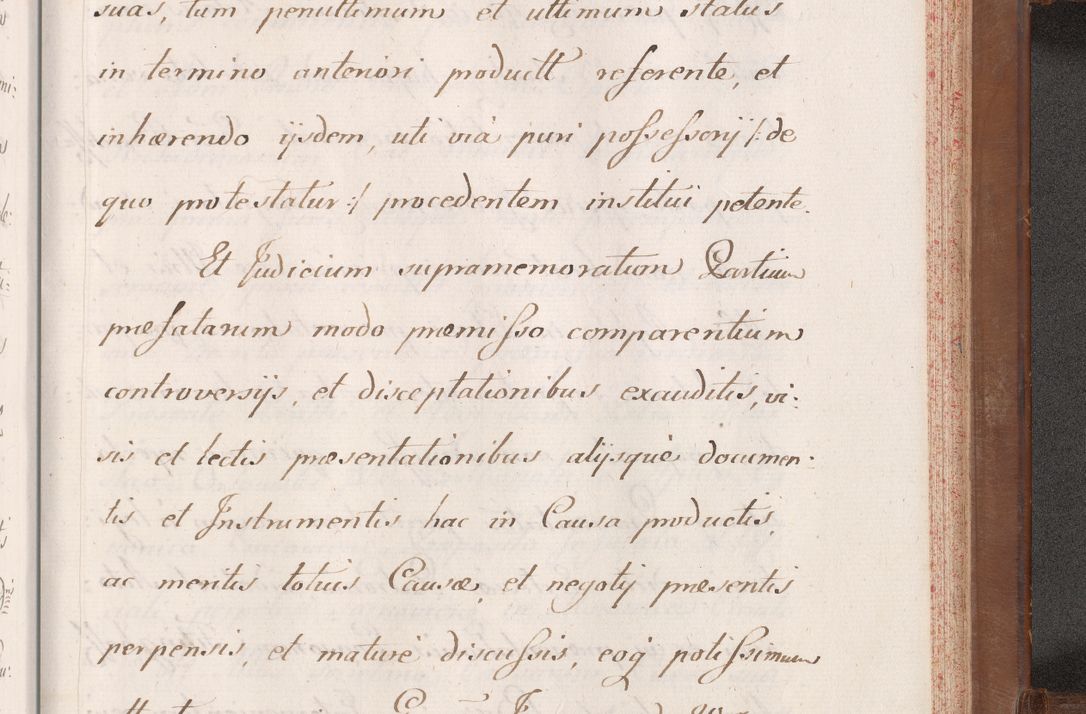 suas, tum penultimum et ultimum status
in termino anteriori productt referente, et
inhærendo ijsdem, uti vià puri possessorij /: de
quo protestatur :/ procedentem institui petente.
Et Judicium supramemoratum Partium
præfatarum modo præmisso comparentium
controversijs, et disceptationibus exauditis, vi:
sis et lectis præsentationibus alijsquè documen:
tis et Instrumentis hac in Causa productis,
ac meritis totius Causæ, et negotij præsentis
perpensis, et maturè discussis, eoq potissimum